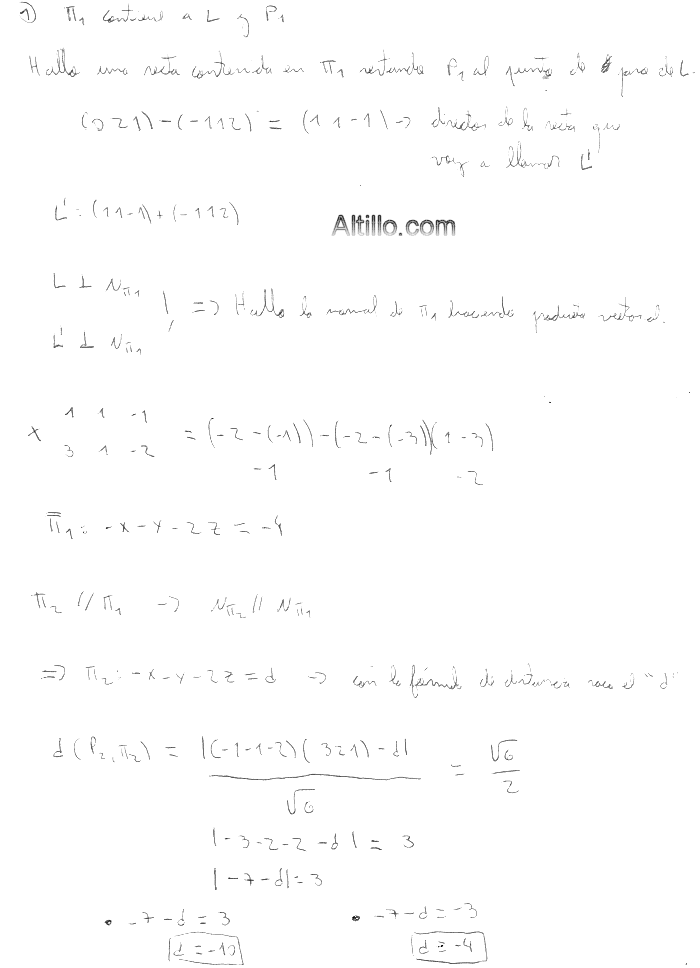 1) π1 contiene a L y P1
Hallo una recta contenida en π1 restando P1 al punto de paso de L.
(0 2 1) - (-1 1 2) = (1 1 -1) -> director de la recta que
voy a llamar L'
L': (1 1 -1) + (-1 1 2)
Altillo.com
L ⊥ Nπ1
L' ⊥ Nπ1
=> Hallo la normal de π1 haciendo producto vectorial.
x 1 1 -1
3 1 -2 = (-2-(-1)) - (-2-(-3)) (1-3)
-1 -1 -2
π1: -x-y-2z = -4
π2 // π1 -> Nπ2 // Nπ1
=> π2: -x-y-2z = d -> con la fórmul de distancia saco el "d"
d(P2, π2) = |(-1-1-2)(3 2 1) - d| / √6 = √6 / 2
|-3-2-2-d| = 3
|-7-d| = 3
• -7-d = 3 • -7-d = -3
d = -10 d = -4